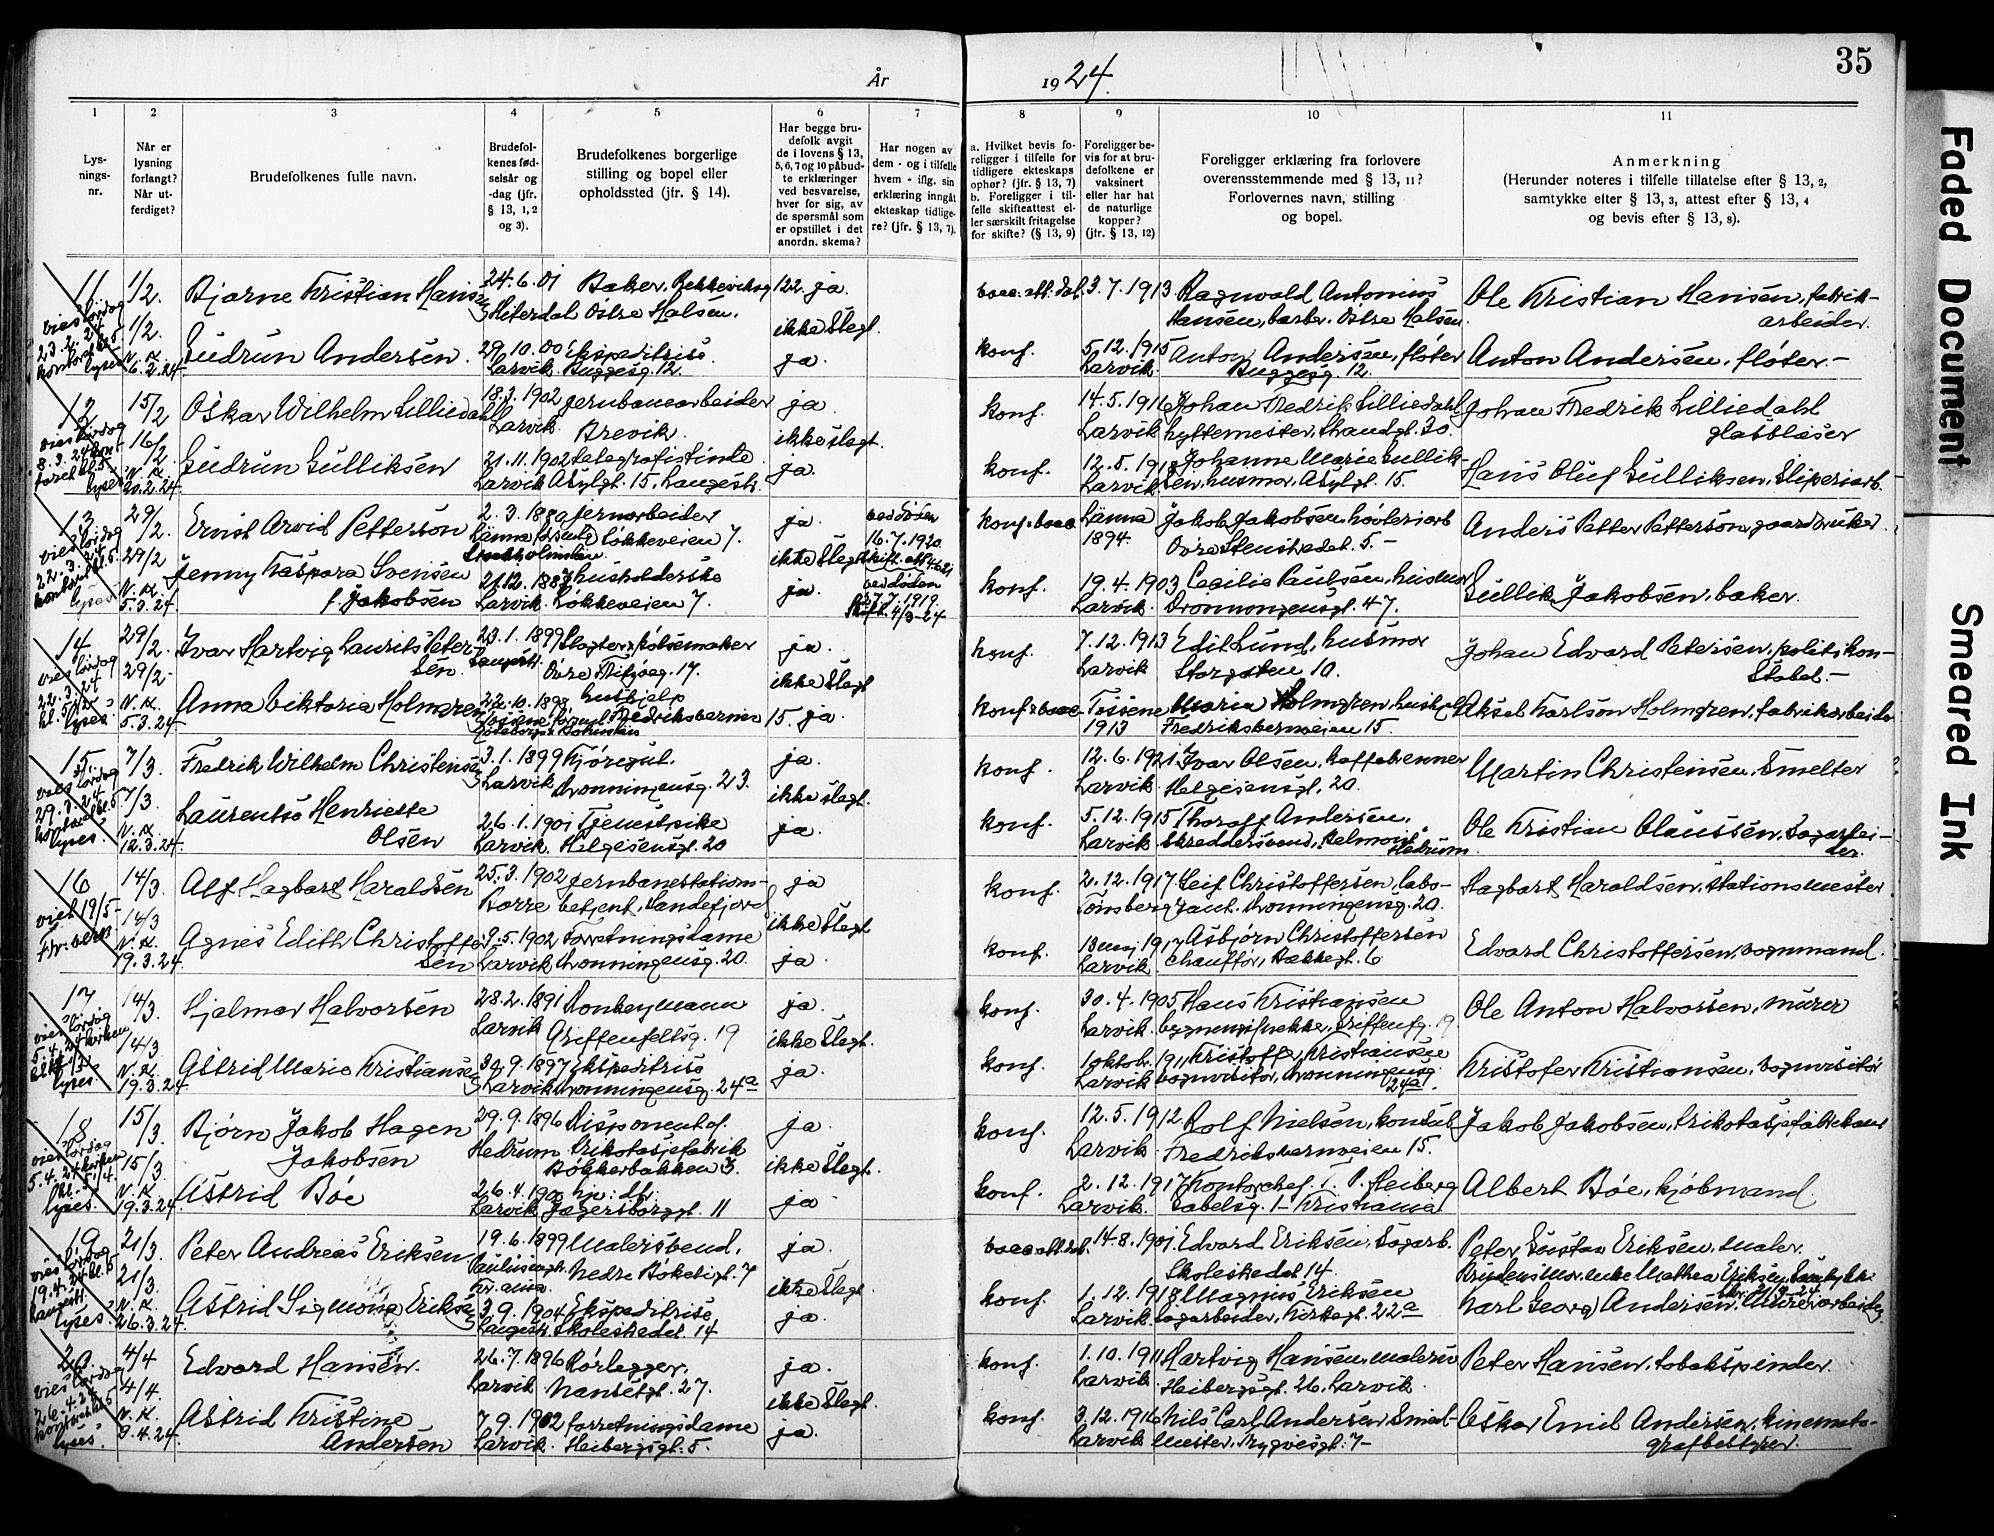 35
År 1924.
1 2 3 4 5 6 7 8 9 10 11
Lysningsnr.
Når er lysning forlangt? Når utferdiget?
Brudefolkenes fulle navn.
Brudefolkenes fødselsår og -dag (jfr. § 13, 1, 2 og 3).
Brudefolkenes borgerlige stilling og bopel eller opholdssted (jfr. § 14).
Har begge brudefolk avgit de i lovens § 13, 5, 6, 7 og 10 påbudte erklæringer ved besvarelse, hver for sig, av de spørsmål som er opstillet i det anordn. skema?
Har nogen av dem - og i tilfelle hvem - iflg. sin erklæring inngåt ekteskap tidligere? (jfr. § 13, 7).
a. Hvilket bevis foreligger i tilfelle for tidligere ekteskaps ophør? (jfr. § 13, 7) b. Foreligger i tilfelle skifteattest eller særskilt fritagelse for skifte? (§ 13, 9)
Foreligger bevis for at brudefolkene er vaksinert eller har hat de naturlige kopper? (jfr. § 13, 12)
Foreligger erklæring fra forlovere overensstemmende med § 13, 11? Forlovernes navn, stilling og bopel.
Anmerkning (Herunder noteres i tilfelle tillatelse efter § 13, 2, samtykke efter § 13, 3, attest efter § 13, 4 og bevis efter § 13, 8).
11 1/2. Bjarne Kristian Hansen 24.6.01 Baker, 122. ja. 3.7.1913 Ragnvald Antonius Ole Kristian Hansen, fabrik-
vies lördag 23.2.24 1/2. Hiterdal Østre Halsen. ikke slegt. Hansen, barber. Østre Halsen. arbeider.
Gudrun Andersen. 29.10.00 Ekspeditrise ja konf. 5.12.1915 Anton Andersen, fløter Anton Andersen, fløter.-
6.2.24. Larvik Buggesg. 12. Larvik. Buggesg. 12.
12 15/2 Oskar Wilhelm Lilliedahl 18.3.1902 jernbanearbeider ja konf. 14.5.1916 Johan Fredrik Lilliedahl, Johan Fredrik Lilliedahl
vies lördag 8.3.24 16/2 Larvik. Brevik. ikke slegt. Larvik hyttemester, Strandgt. 30. glassblåser
Gudrun Gulliksen 21.11.1902 telegrafistinde ja. konf. Johanne Marie Gullik- Hans Oluf Gulliksen, Sliperiarb.
20.2.24. Larvik Asylgt. 15. Langestr. Larvik sen, husmor, Asylgt. 15.
13 29/2. Ernst Arvid Petterson jernarbeider ja. ved døden konf. Länna Jakob Jakobsen, høvleriarb Anders Petter Petterson, gaardbruker.
vies lördag 22.3.24 29/2 Løkkeveien 7. ikke slegt 16.7.1920 1894. Øvre Stenskedet. 5.-
Jenny Kaspara Svensen husholderske ja. ved døden konf. 19.4.1903 Cecilie Paulsen, husmor Gullik Jakobsen, baker.
5.3.24 f. Jakobsen Larvik. Løkkeveien 7. 27.7.1919. Larvik. Dronningensgt. 47.
14 29/2. Ivar Hartvig Laurits Peter- 23.1.1899 Slagter & pølsemaker ja. konf. 7.12.1913 Edil Lund, husmor Johan Edvard Petersen, politikon-
vies lördag 22.3.24 29/2- sen. Langestr. 17. ikke slegt Larvik Storgaten 10. stabel.-
Anna Viktoria Holmgren hushjelp Fredriksvernsv 15. ja. Tossene Maria Holmgren, hushjelp Aksel Karlson Holmgren, fabrikarbeider
5.3.24. 1913 Fredriksvernveien 15.
15. 7/3. Fredrik Wilhelm Christensen 3.1.1899 ja. konf. 12.6.1921 Ivar Olsen, kaffebrenner Martin Christensen, Smelter
vies lördag 29.3.24 7/3. Larvik Dronningensg. 23. ikke slegt. Larvik. Helgesensgt. 20.
Laurentse Henriette 26.1.1901 Tjenestpike ja. konf. 5.12.1915 Thoralf Andersen, Ole Kristian Olaussen, Sagarbei-
12.3.24. Olsen Larvik. Helgesensgt. 20 Larvik. skreddersvend, Hedrum. der.
16 14/3. Alf Hagbart Haraldsen 25.3.1902 jernbanestations- ja konf. 2.12.1917 Leif Christoffersen, Hagbart Haraldsen, stationsmester
viet 19/5- 14/3 Borre betjent, Sandefjord ikke slegt Tønsberg Dronningensg. 20.
Agnes Edith Christoffer- 9.5.1902 Forretningsdame ja. konf. 13 mai 1917 Asbjørn Christoffersen Edvard Christoffersen, vognmand.
19.3.24. sen Larvik Dronningensg. 20. Larvik. chauffør, Bakkegt. 6
17 14/3. Hjalmar Halvorsen 28.2.1891 Donkeymann ja. konf. 30.4.1905 Hans Kristiansen Ole Anton Halvorsen, murer
vies lördag 5.4.24 kirken 14/3 Larvik Griffenfeltsg. 19 ikke slegt. Larvik.
Astrid Marie Kristiansen 30.9.1897 Ekspeditrise ja. konf. 1 oktob. 1911 Kristoffer Kristiansen Kristofer Kristiansen, vognvisitør
19.3.24. Larvik Dronningensg. 24a Larvik vognvisitør, Dronningensg. 24a.
18 15/3. Bjørn Jakob Hagen 29.9.1896 Disponent af. ja. konf. 12.5.1912 Rolf Nielsen, konsul Jakob Jakobsen, trikotasjefabrikant
vies lördag 5.4.24 kirken 15/3. Jakobsen Hedrum Trikotasjefabrik Bøkkerbakken 3. ikke slegt. Larvik. Fredriksvernveien 15.
Astrid Bøe ja konf. 2.12.1917 Kontorchef Heiberg Albert Bøe, kjøbmand.
19.3.24. Larvik. Jegersborggt. 11 Larvik. Sabelsg. 1- Kristiania
19 21/3. Peter Andreas Eriksen 19.6.1899 Malersvend, ja. 14.8.1901. Edvard Eriksen, Sagarb. Peter Gustav Eriksen, maler.
vies lördag 19.4.24 kl. 5 21/3. Nedre Bøkeligt. 7 ikke slegt. Skoleskedet 14
Astrid Sigmona Eriksen 3.9.1904 Ekspeditrise ja. konf. 1.12.1918 Magnus Eriksen Karl Georg Andersen,
26.3.24. Langestr. Skoleskedet. 14 Larvik. Sagarbeider, Kirkegt. 22a
20. 4/4 Edvard Hansen. 26.7.1896 Rørlegger, ja. konf. 1.10.1911 Hartvig Hansen, malersv Peter Hansen, tobakspinder.
vies lördag 26.4.24 4/4. Larvik. Nansetgt. 27. ikke slegt. Larvik. Heibergsgt. 26. Larvik.
Astrid Kristine 7.9.1902 forretningsdame ja. konf. 3.12.1916 Nils Carl Andersen, Smed- Oskar Emil Andersen, kinemato-
9.4.24. Andersen Larvik. Heibergsgt. 5. Larvik mester, Trygvesgt. 7- grafbestyrer.
Faded Document
Smeared Ink